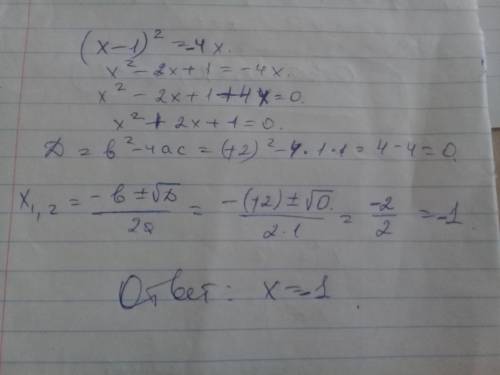 (x-1)² = -4x.
x² - 2x + 1 = -4x.
x² - 2x + 1 + 4x = 0.
x² + 2x + 1 = 0.
D = b² - 4ac = (+2)² - 4·1·1 = 4 - 4 = 0.
x₁,₂ = (-b ± √D)/2a = (-(+2) ± √0)/(2·1) = -2/2 = -1
Ответ: x = -1.